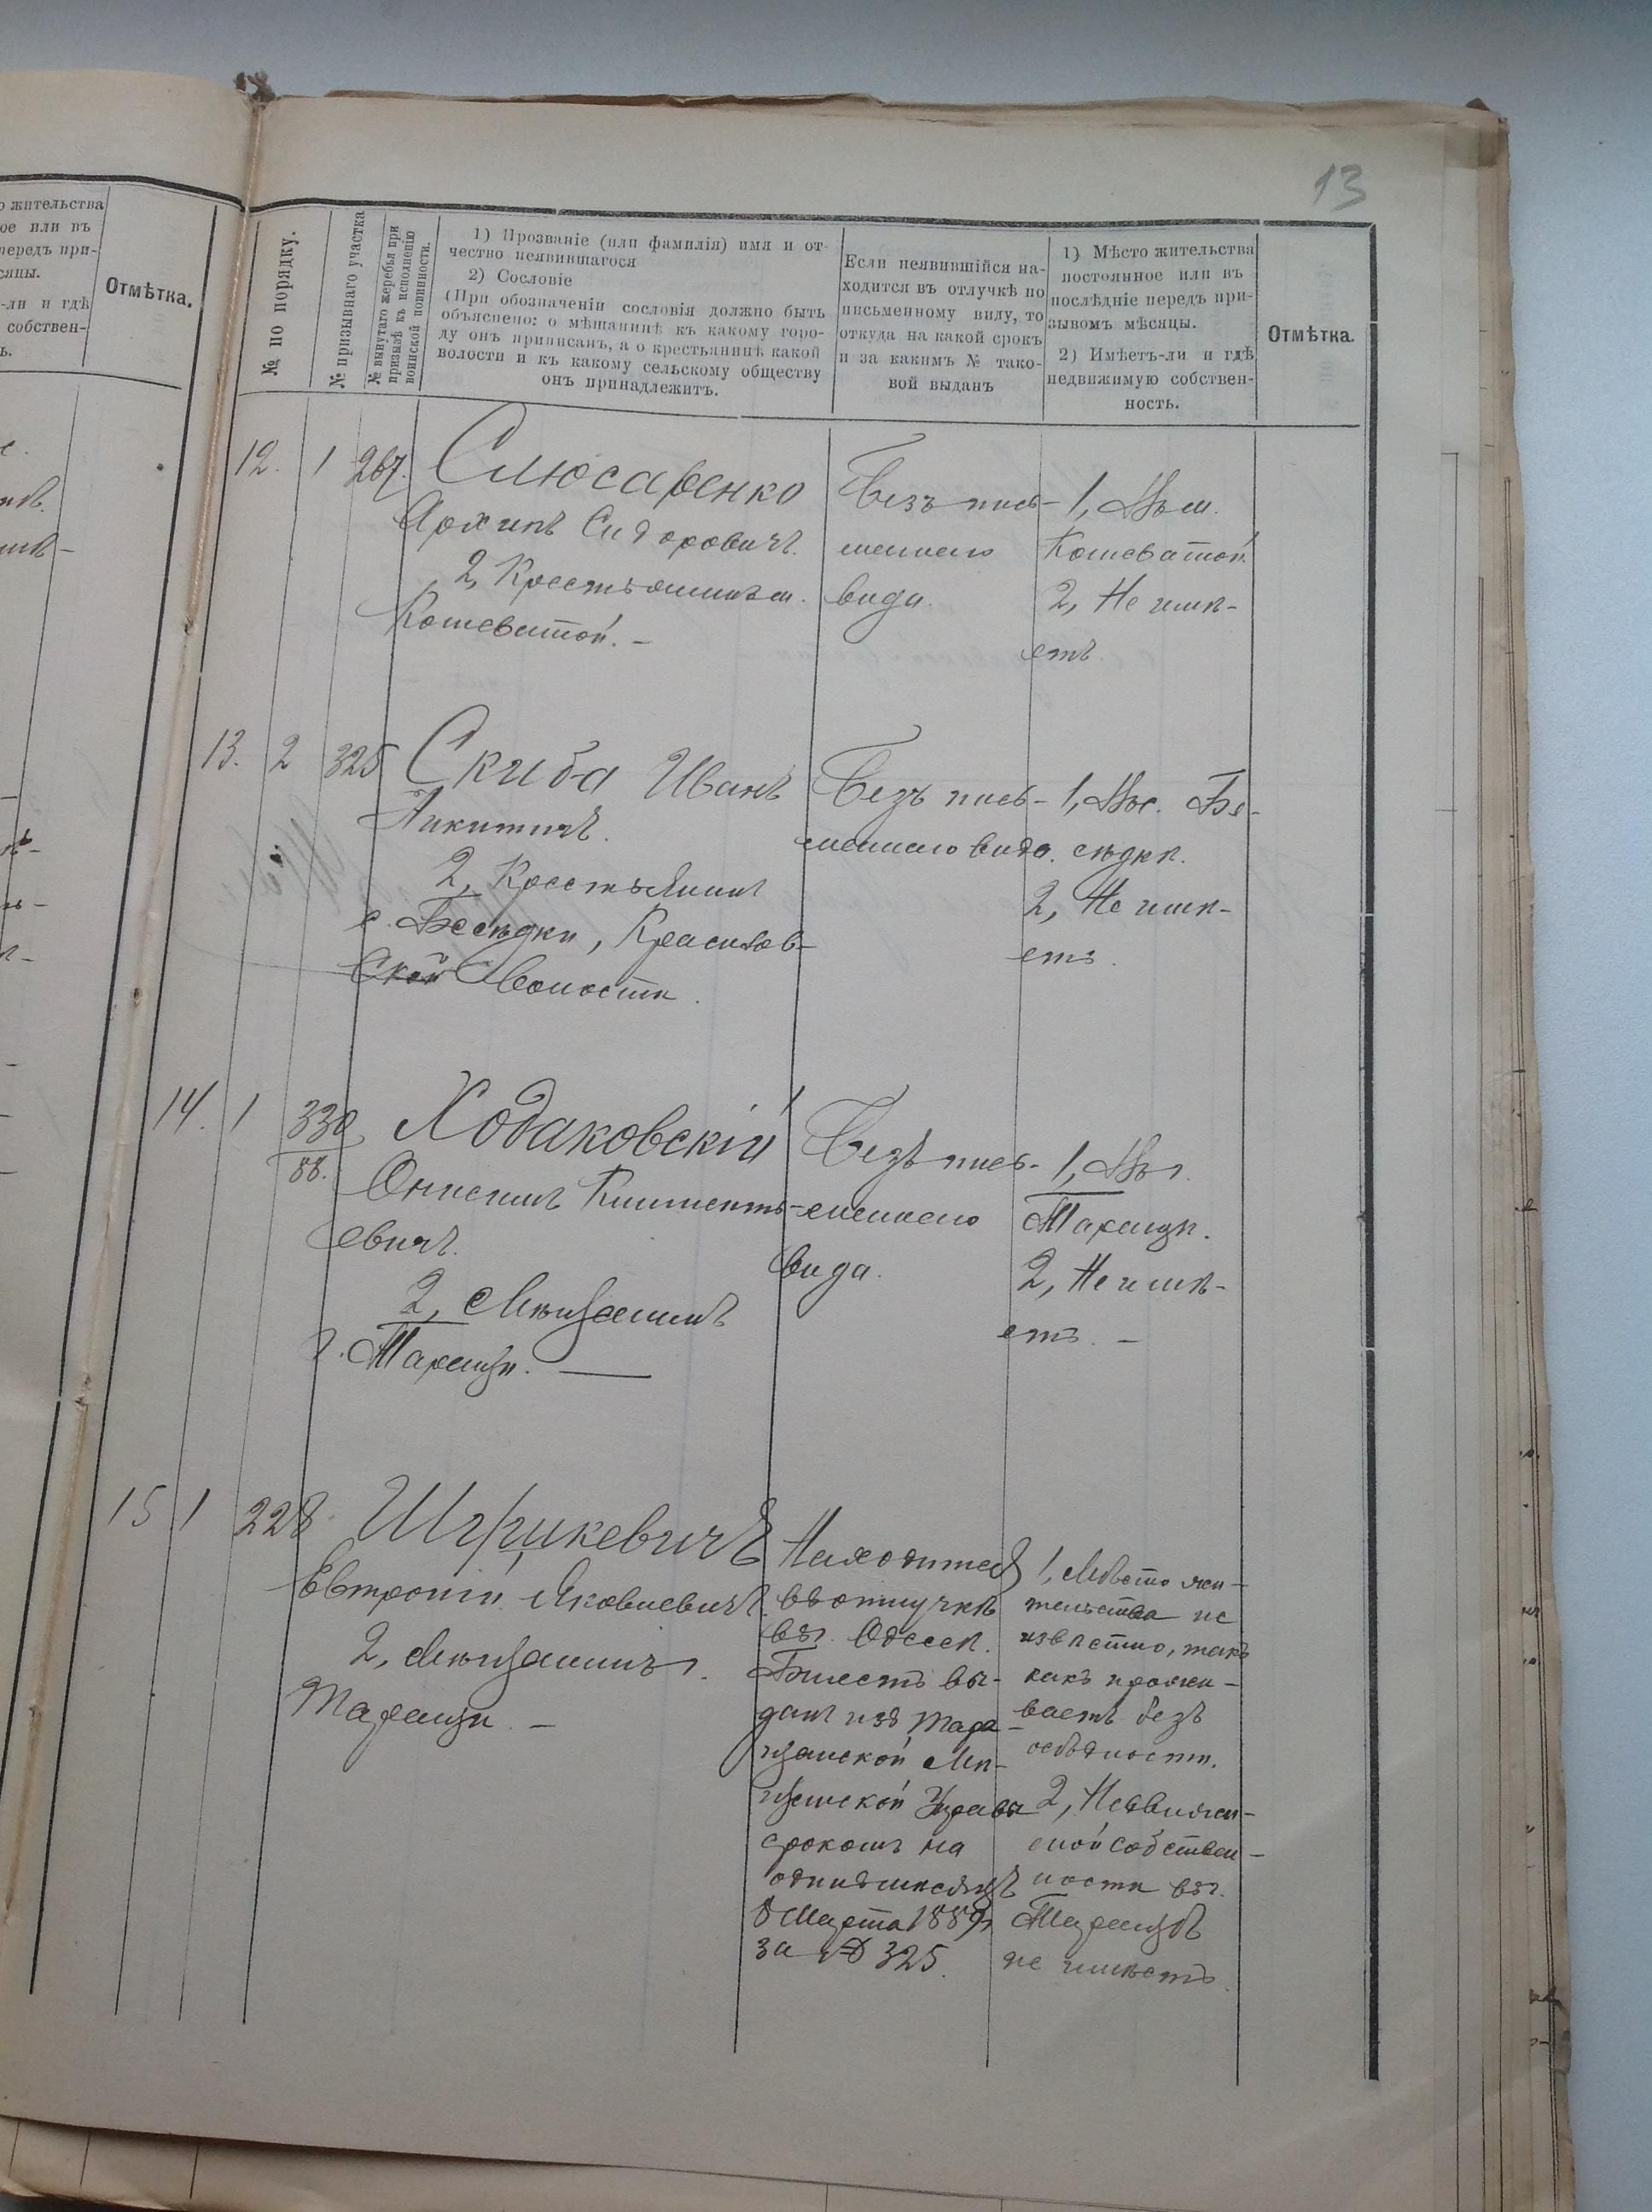 13
о жительства
ое или въ
передъ при-
сяцы.
-ли и гдѣ
собствен-
ь.
Отмѣтка.
№ по порядку.
№ призывнаго участка
№ вынутаго жеребья при
призывѣ къ исполненію
воинской повинности.
1) Прозваніе (или фамилія) имя и от-
чество неявившагося
2) Сословіе
(При обозначеніи сословія должно быть
объяснено: о мѣщанинѣ къ какому горо-
ду онъ приписанъ, а о крестьянинѣ какой
волости и къ какому сельскому обществу
онъ принадлежитъ.
Если неявившійся на-
ходится въ отлучкѣ по
письменному виду, то
откуда на какой срокъ
и за какимъ № тако-
вой выданъ
1) Мѣсто жительства
постоянное или въ
послѣдніе передъ при-
зывомъ мѣсяцы.
2) Имѣетъ-ли и гдѣ
недвижимую собствен-
ность.
Отмѣтка.
12. 1 267. Слюсаренко
Архипъ Сидоровичъ.
2, Крестьянинъ м.
Кошеватой. –
Безъ пись-
меннаго
вида.
1, Въ м.
Кошеватой.
2, Не имѣ-
етъ
13. 2 325 Скиба Иванъ
Никитичъ.
2, Крестьянинъ
с. Бесѣдки, Красилов-
ской волости.
Безъ пись-
меннаго вида.
1, Въ с. Бе-
сѣдкѣ.
2, Не имѣ-
етъ.
14. 1 330
88.
Ходаковскій
Онисимъ Климентъ-
евичъ.
2, Мѣщанинъ
г. Таращи. —
Безъ пись-
меннаго
вида.
1, Въ г.
Таращѣ.
2, Не имѣ-
етъ. –
15 1 228
Евтропій Яковлевичъ.
2, Мѣщанинъ г.
Таращи. –
Находится
въ отлучкѣ
въ г. Одессѣ.
Билетъ вы-
данъ изъ Тара-
щанской Мѣ-
щанской Управы
срокомъ на
одинъ мѣсяцъ
8 Марта 1889 г.
за № 325.
1, Мѣсто жи-
тельства не
извѣстно, такъ
какъ прожи-
ваетъ безъ
осѣдлости.
2, Недвижи-
мой собствен-
ности въ г.
Таращѣ
не имѣетъ.